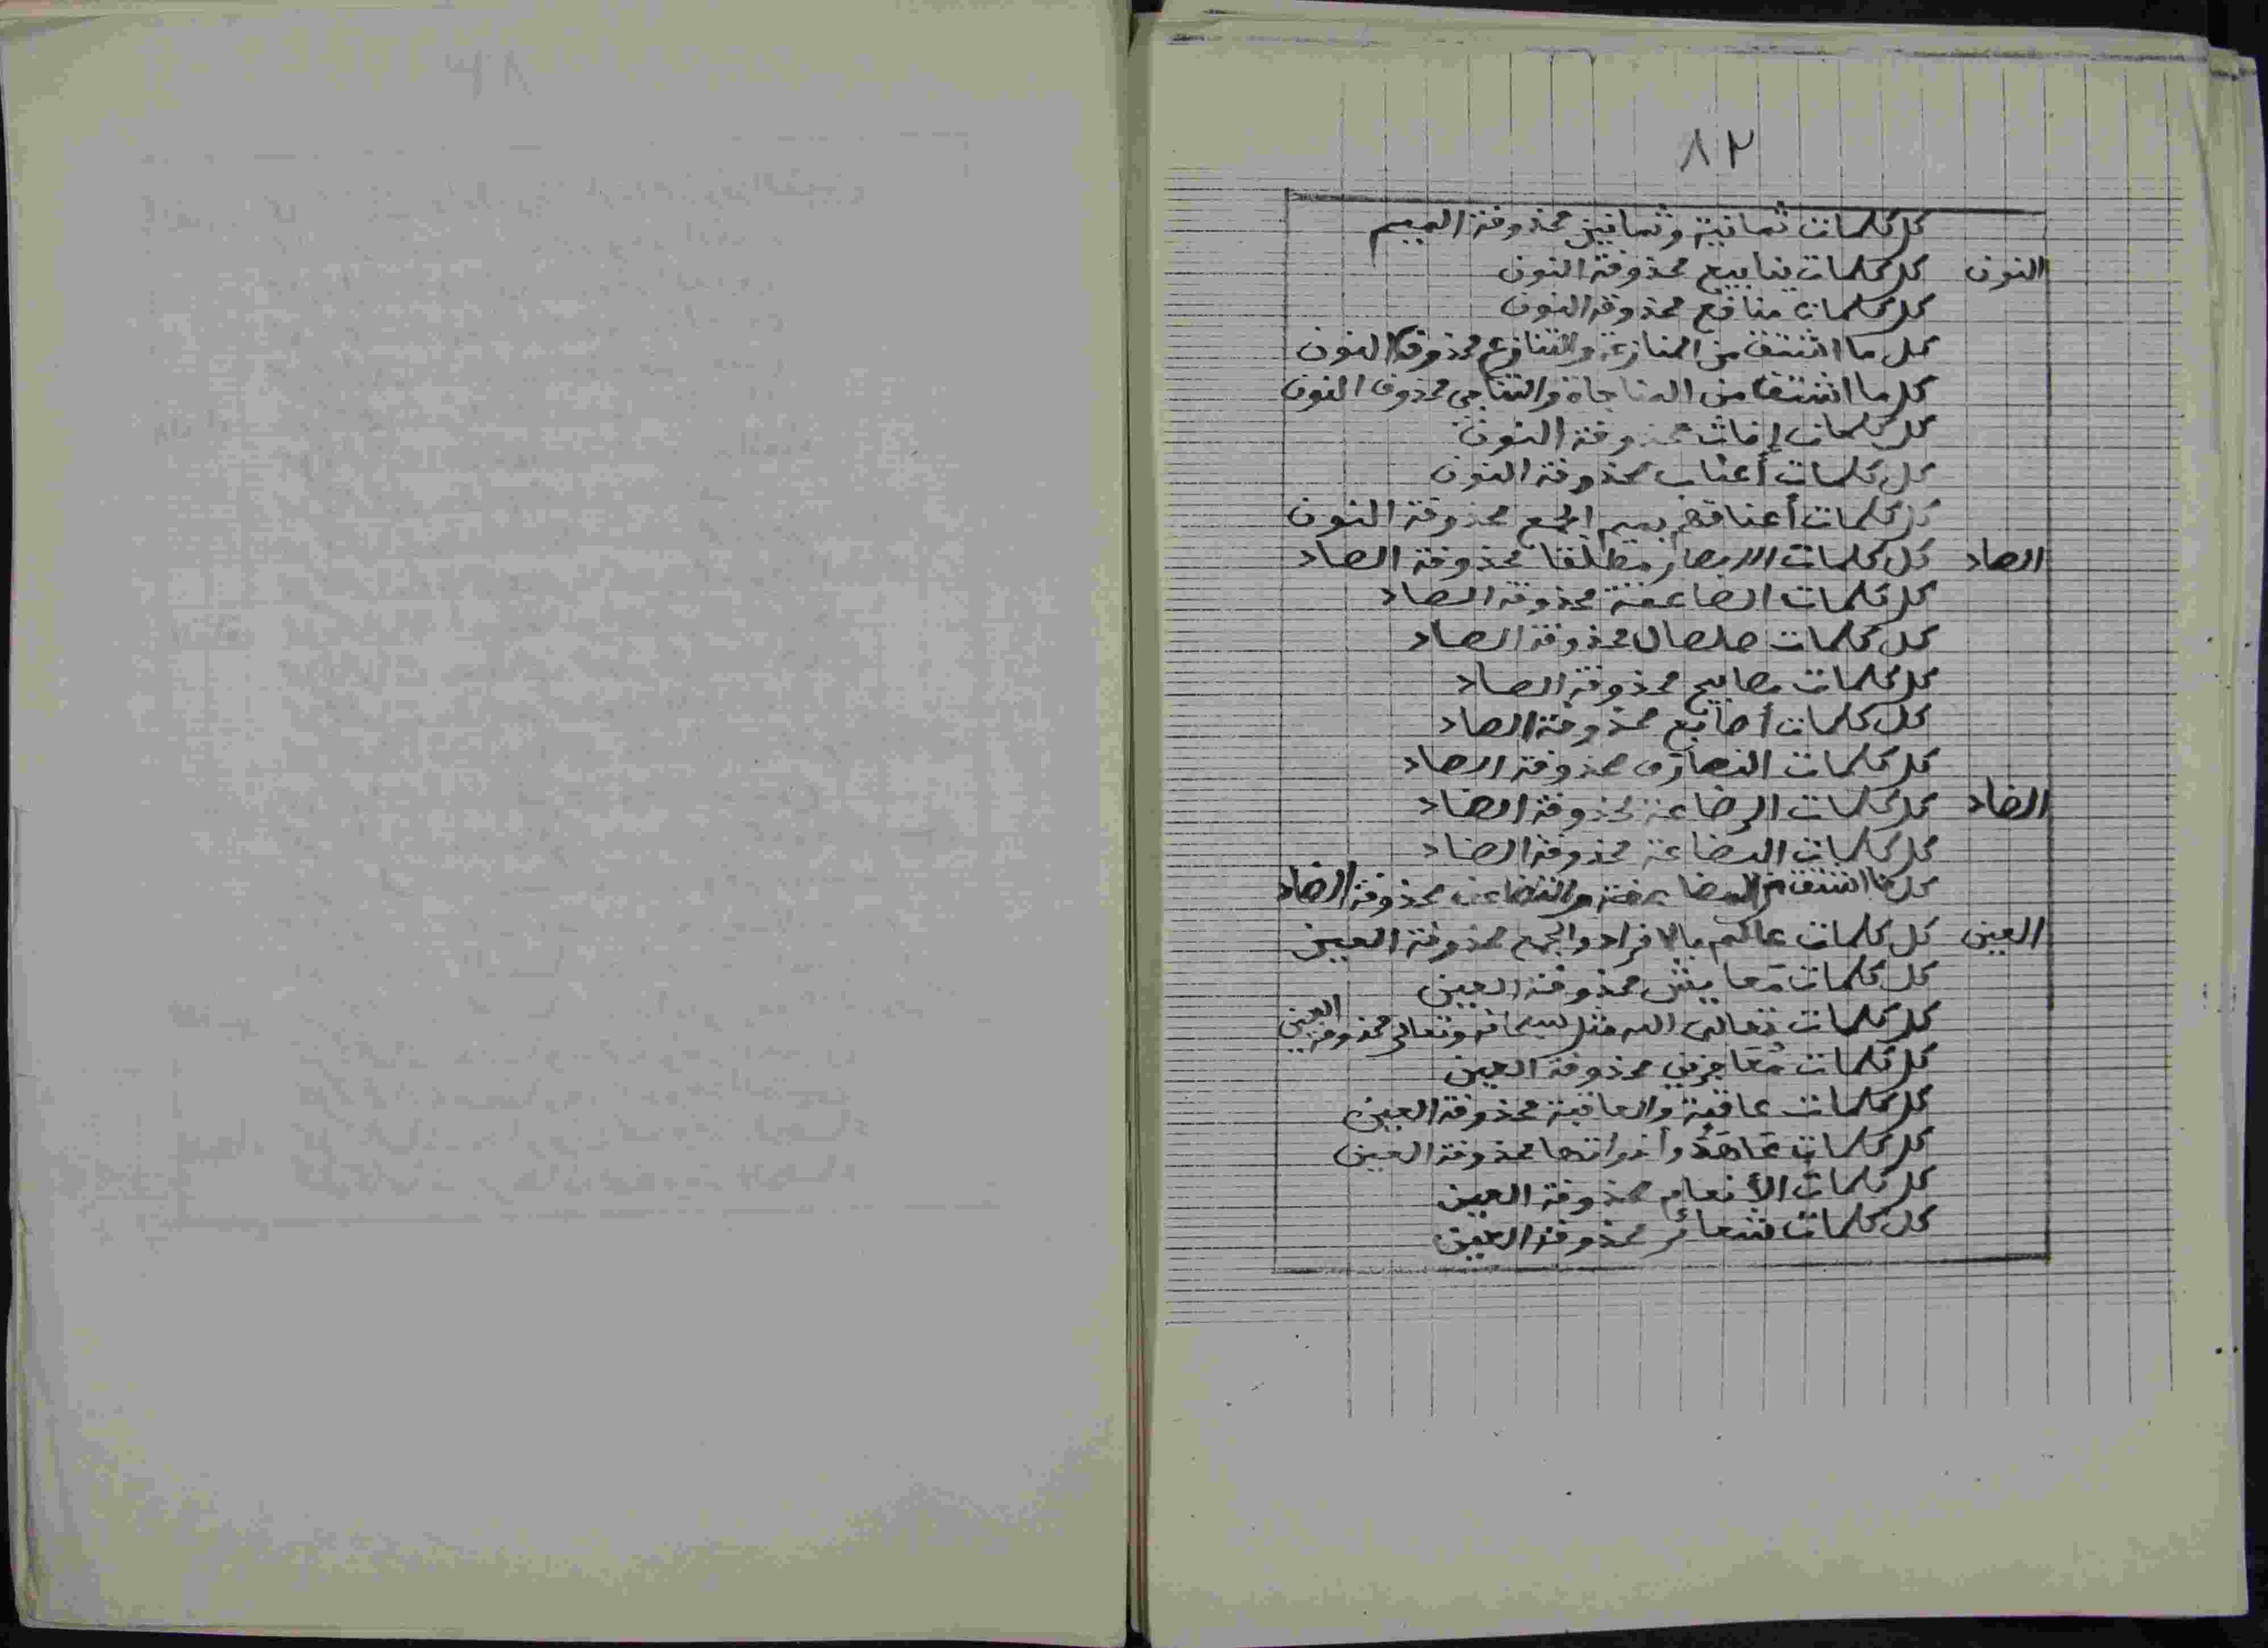 ٨٢
كل كلمات ثمانية وثمانين محذوفة الميم
النون كل كلمات ينابيع محذوفة النون
كل كلمات منافع محذوفة النون
كل ما اشتق من المنازعة والتنازع محذوفة النون
كل ما اشتق من المناجاة والتناجي محذوف النون
كل كلمات إناث محذوفة النون
كل كلمات أعناب محذوفة النون
كل كلمات أعناقهم بميم الجمع محذوفة النون
الصاد كل كلمات الابصار مطلقا محذوفة الصاد
كل كلمات الصاعقة محذوفة الصاد
كل كلمات صلصال محذوفة الصاد
كل كلمات مصابيح محذوفة الصاد
كل كلمات أصابع محذوفة الصاد
كل كلمات النصارى محذوفة الصاد
الضاد كل كلمات الرضاعة محذوفة الضاد
كل كلمات البضاعة محذوفة الضاد
كل ما اشتق من المضاعفة والتضاعف محذوفة الضاد
العين كل كلمات عالم بالافراد والجمع محذوفة العين
كل كلمات مَعايش محذوفة العين
كل كلمات تعالى الله مثل سبحانه وتعالى محذوفة العين
كل كلمات مُعَاجزين محذوفة العين
كل كلمات عاقبة والعاقبة محذوفة العين
كل كلمات عَاهَدُ وأخواتها محذوفة العين
كل كلمات الأنعام محذوفة العين
كل كلمات شعائر محذوفة العين